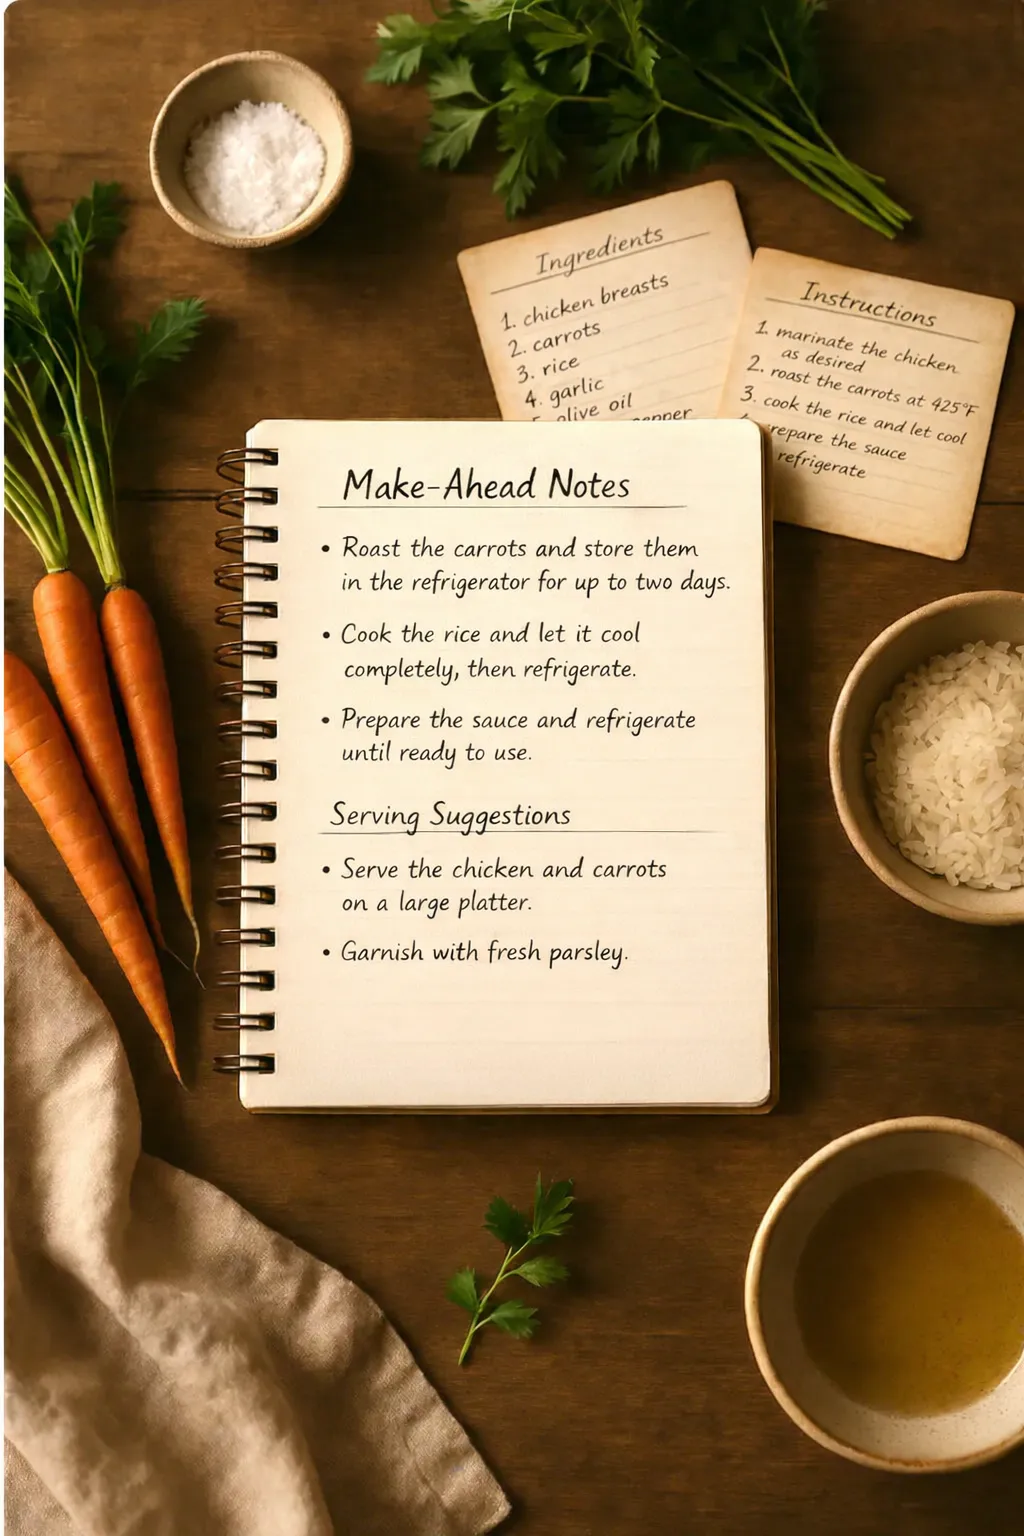 Ingredients
1. chicken breasts
2. carrots
3. rice
4. garlic
olive oil
pepper
Instructions
1. marinate the chicken
as desired
2. roast the carrots at 425°F
3. cook the rice and let cool
repare the sauce
refrigerate
Make-Ahead Notes
• Roast the carrots and store them
in the refrigerator for up to two days.
• Cook the rice and let it cool
completely, then refrigerate.
• Prepare the sauce and refrigerate
until ready to use.
Serving Suggestions
• Serve the chicken and carrots
on a large platter.
• Garnish with fresh parsley.